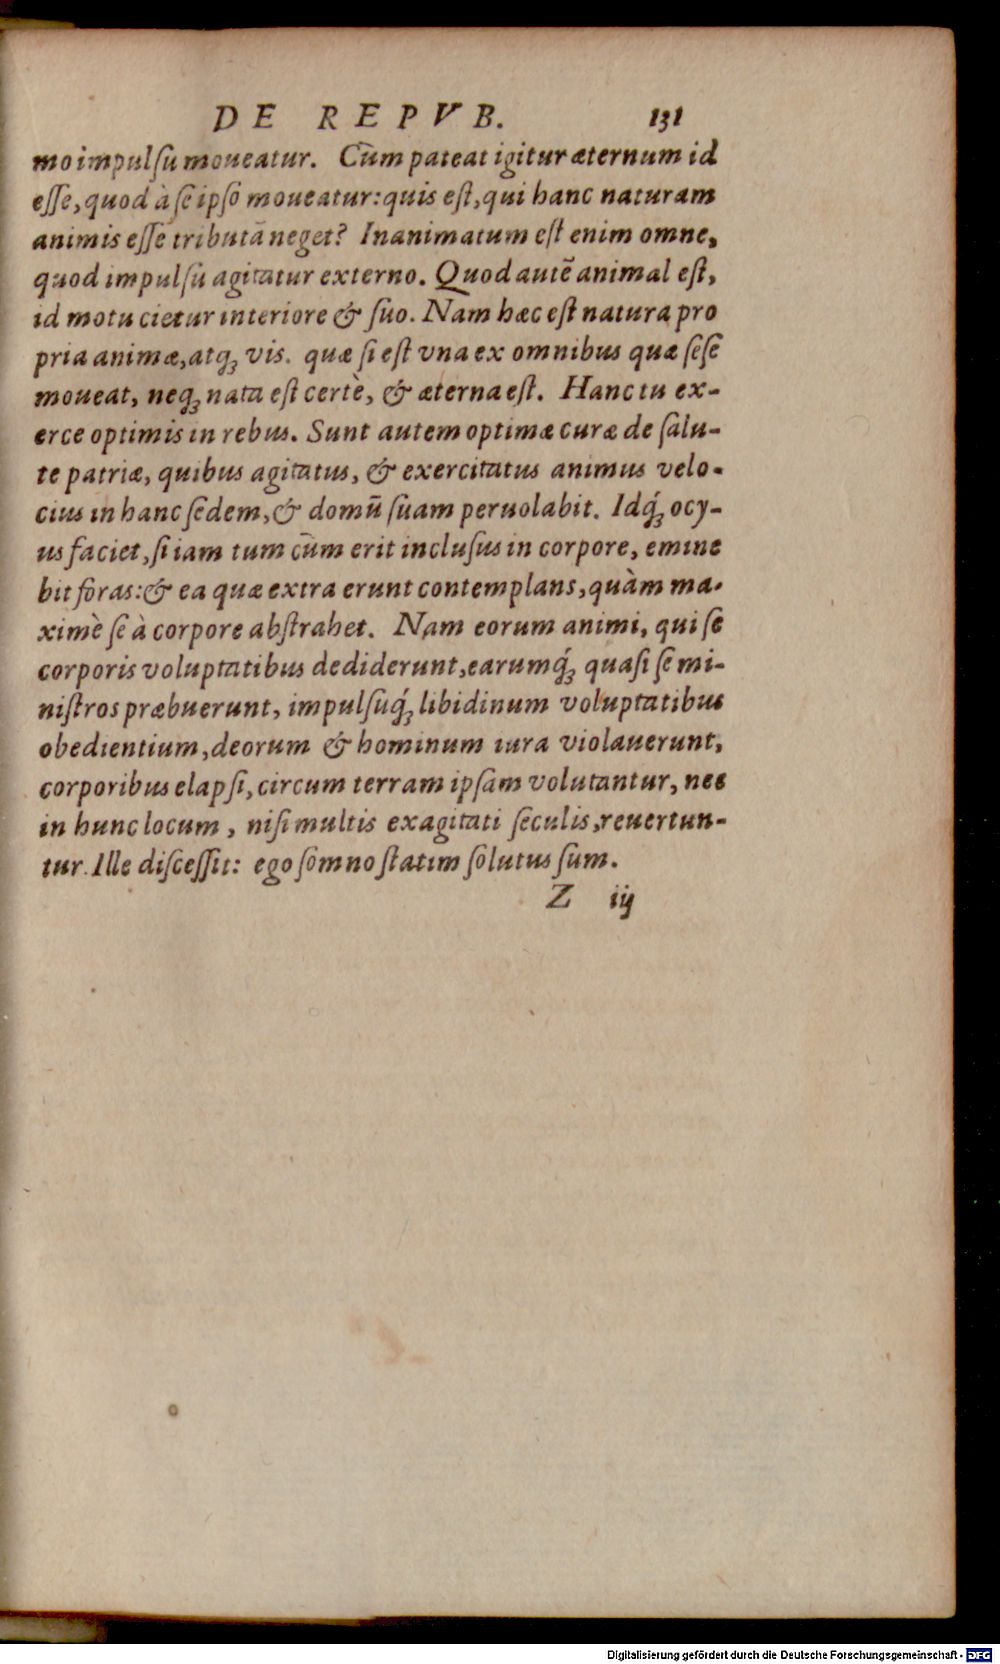 DE REPVB. 131
mo impulſu moueatur. Cùm pateat igitur æternum id
eſſe, quod à ſe ipſo moueatur: quis eſt, qui hanc naturam
animis eſſe tributā neget? Inanimatum eſt enim omne,
quod impulſu agitatur externo. Quod autē animal eſt,
id motu cietur interiore & ſuo. Nam hæc eſt natura pro
pria animæ, atq; vis. quæ ſi eſt vna ex omnibus quæ ſeſe
moueat, neq; nata eſt certè, & æterna eſt. Hanc tu ex-
erce optimis in rebus. Sunt autem optimæ curæ de ſalu-
te patriæ, quibus agitatus, & exercitatus animus velo-
cius in hanc ſedem, & domū ſuam peruolabit. Idq́; ocy-
us faciet, ſi iam tum cùm erit incluſus in corpore, emine
bit foras: & ea quæ extra erunt contemplans, quàm ma-
ximè ſe à corpore abſtrahet. Nam eorum animi, qui ſe
corporis voluptatibus dediderunt, earumq́; quaſi ſe mi-
niſtros præbuerunt, impulſuq́; libidinum voluptatibus
obedientium, deorum & hominum iura violauerunt,
corporibus elapſi, circum terram ipſam volutantur, nec
in hunc locum, niſi multis exagitati ſeculis, reuertun-
tur. Ille diſceſſit: ego ſomno ſtatim ſolutus ſum.
Z iij
Digitalisierung gefördert durch die Deutsche Forschungsgemeinschaft - DFG